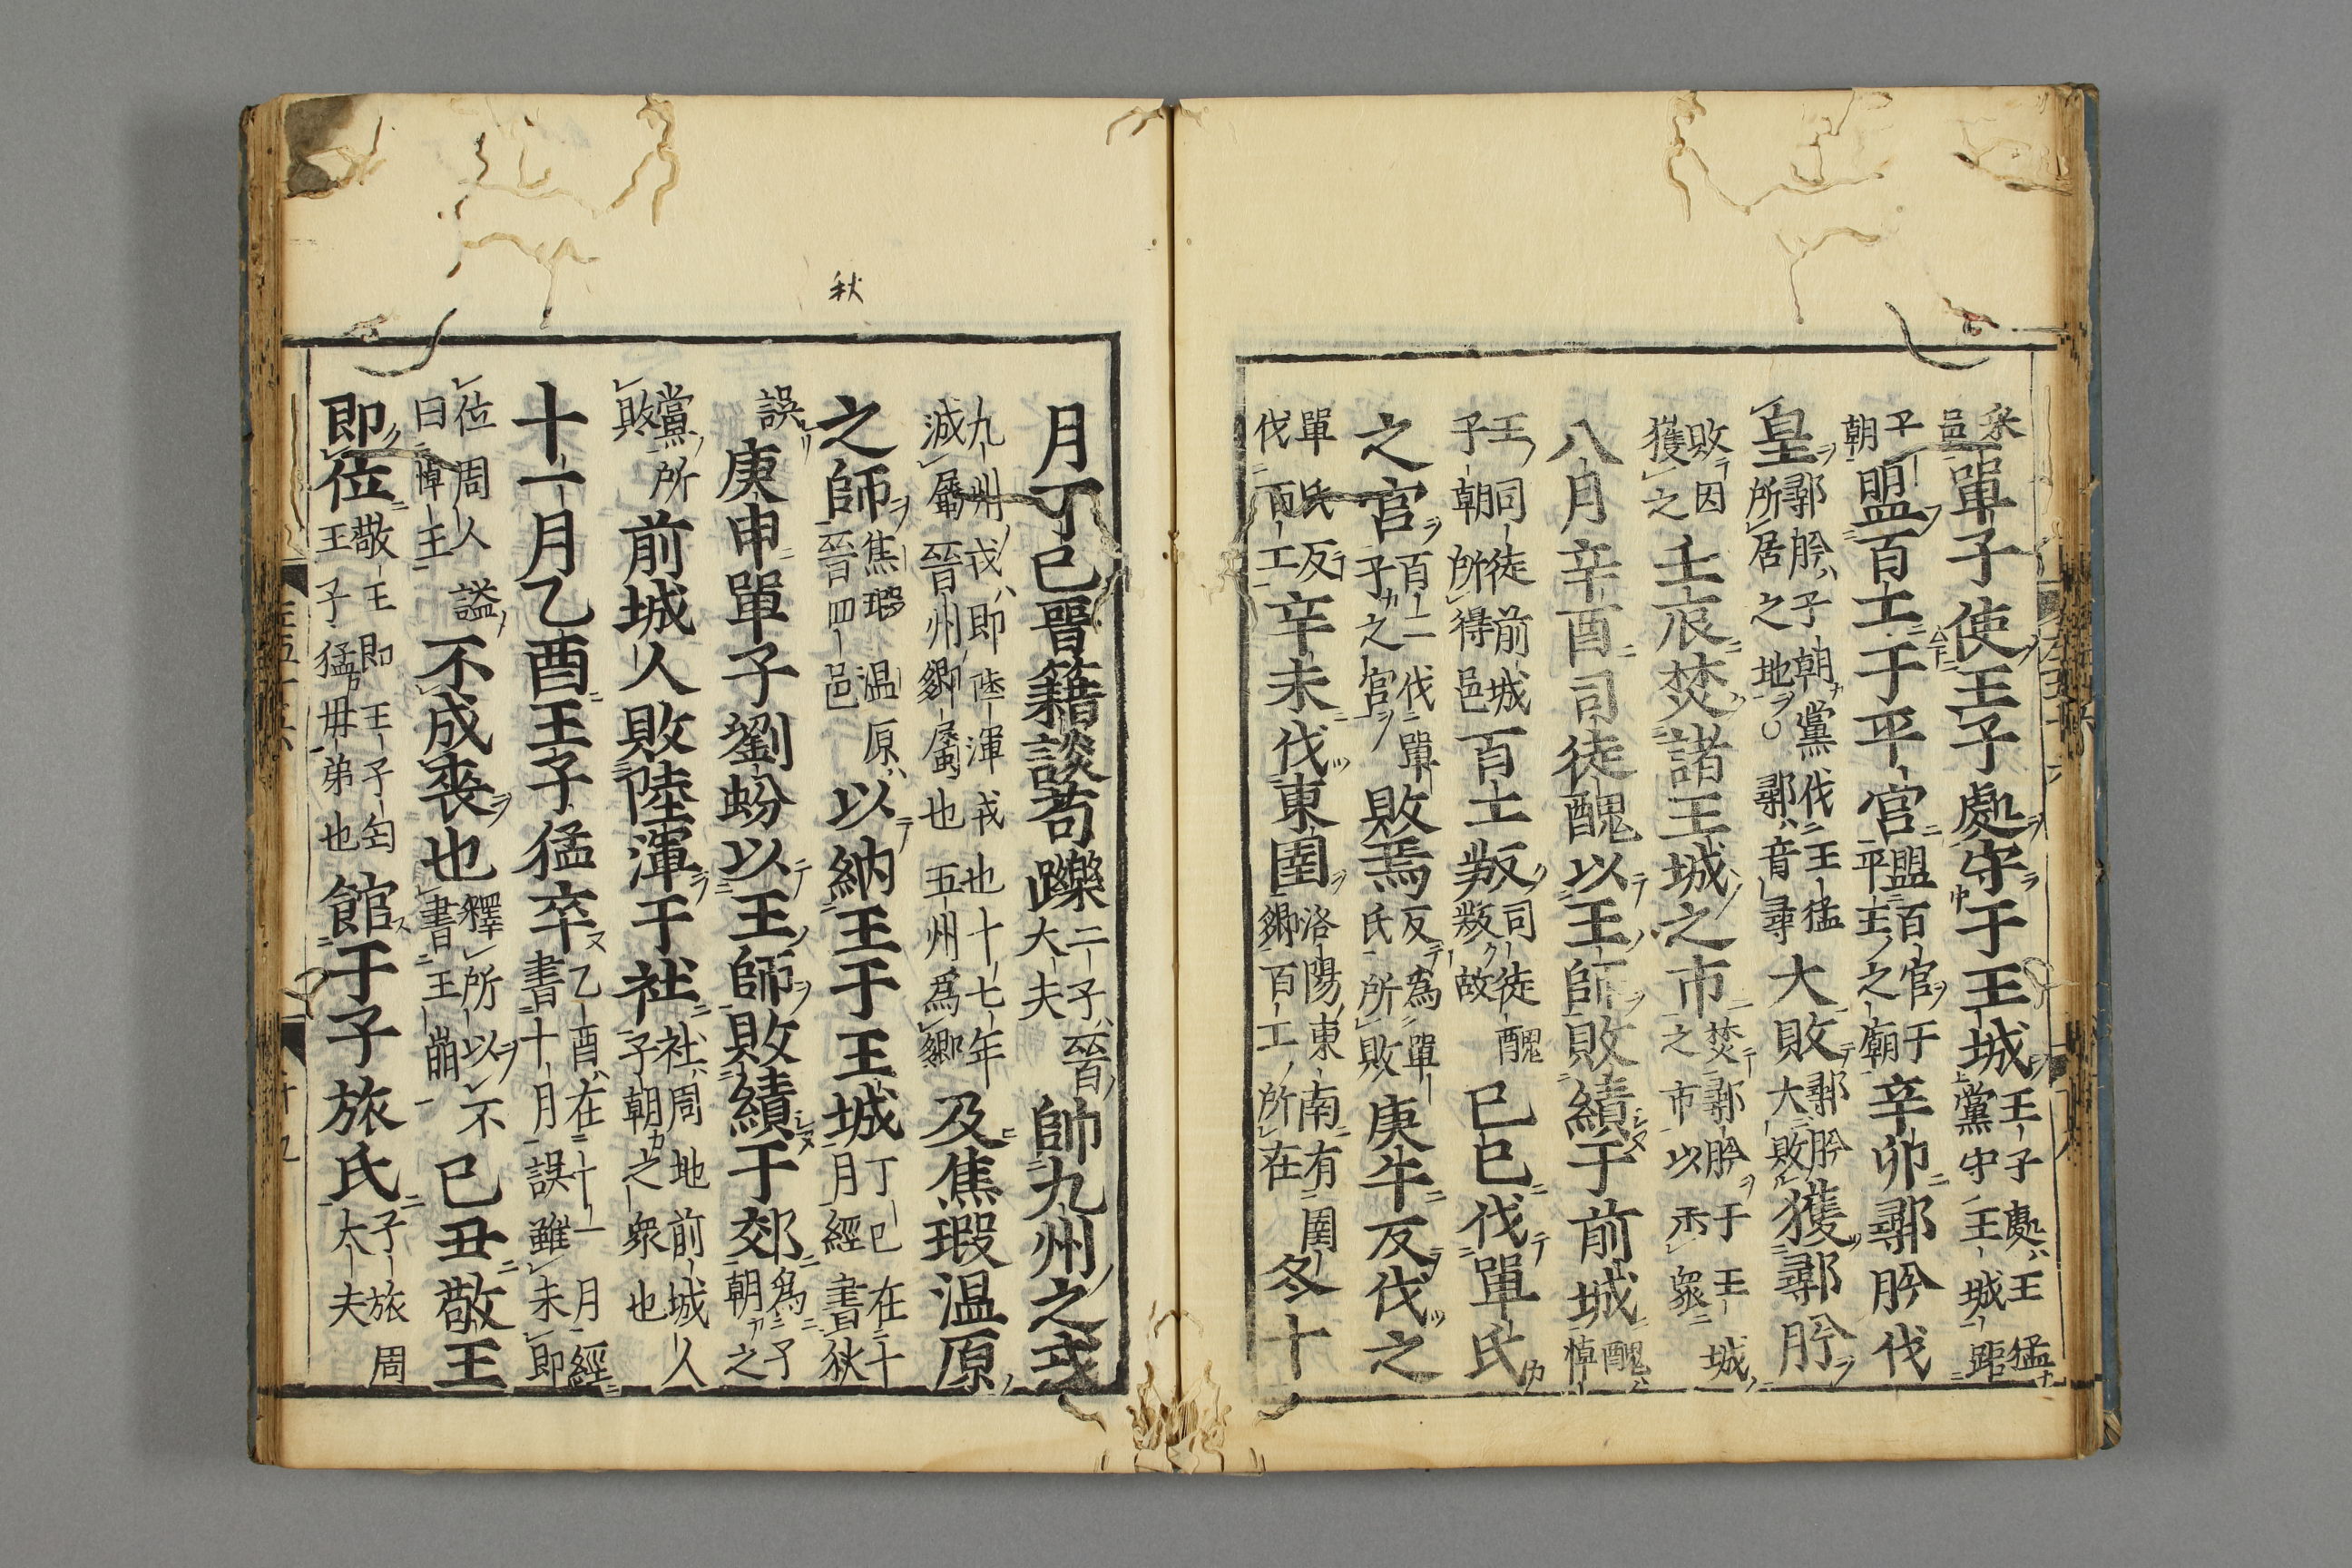 釆邑單子使王子處守于王城王子處王猛黨守王城距
子朝盟百工于平宮盟百官于平王之廟辛卯鄩肸伐
皇鄩肸子朝黨伐王猛所居之地○鄩音尋大敗鄩肸大敗獲鄩肸
敗因獲之壬辰焚諸王城之市焚鄩肸于王城之市以示衆
八月辛酉司徒醜以王師敗績于前城醜悼
王司徒前城子朝所得邑百工叛司徒醜敗故己巳伐單氏
之宮百工伐單子之宮敗焉反為單氏所敗庚午反伐之
單氏反伐百工辛未伐東圉洛陽東南有圉鄉百工所在冬十
秋
月丁巳晉籍談荀躒二子晉大夫帥九州之戎
九州戎即陸渾戎也十七年滅屬晉州鄉屬也五州為鄉及焦瑕温原
之師焦瑕温原晉四邑以納王于王城丁巳在十月經書秋
誤庚申單子劉蚠以王師敗績于郊為子朝之
黨所敗前城人敗陸渾于社社周地前城人子朝之衆也
十一月乙酉王子猛卒乙酉在十一月經書十月誤雖未即
位周人謚曰悼王不成喪也釋所以不書王崩己丑敬王
即位敬王即王子匄王子猛母弟也館于子旅氏子旅周大夫